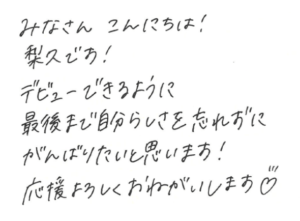 みなさん こんにちは!
梨久です!
デビューできるように
最後まで自分らしさを忘れずに
がんばりたいと思います!
応援よろしくおねがいします♡